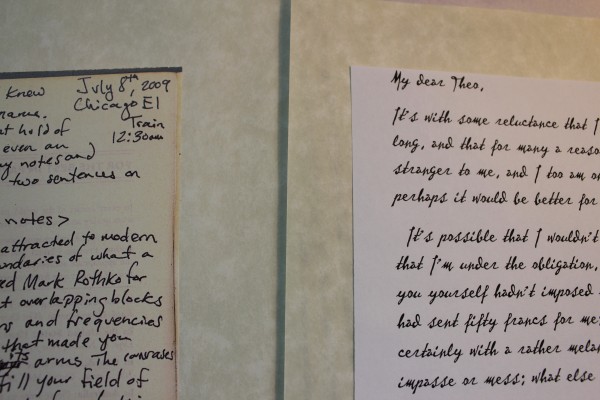 knew
July 8th, 2009
Chicago El
Train
12:30am
hold of
even an
notes and
two sentences on
notes >
attracted to modern
of what a
Mark Rothko for
overlapping blocks
and frequencies
that made you
arms. The
fill your field of
My dear Theo,
It's with some reluctance that I
long, and that for many a
stranger to me, and I too am
perhaps it would be better for
It's possible that I wouldn't
that I'm under the obligation,
you yourself hadn't imposed
had sent fifty francs for me;
certainly with a rather
impasse or mess; what else